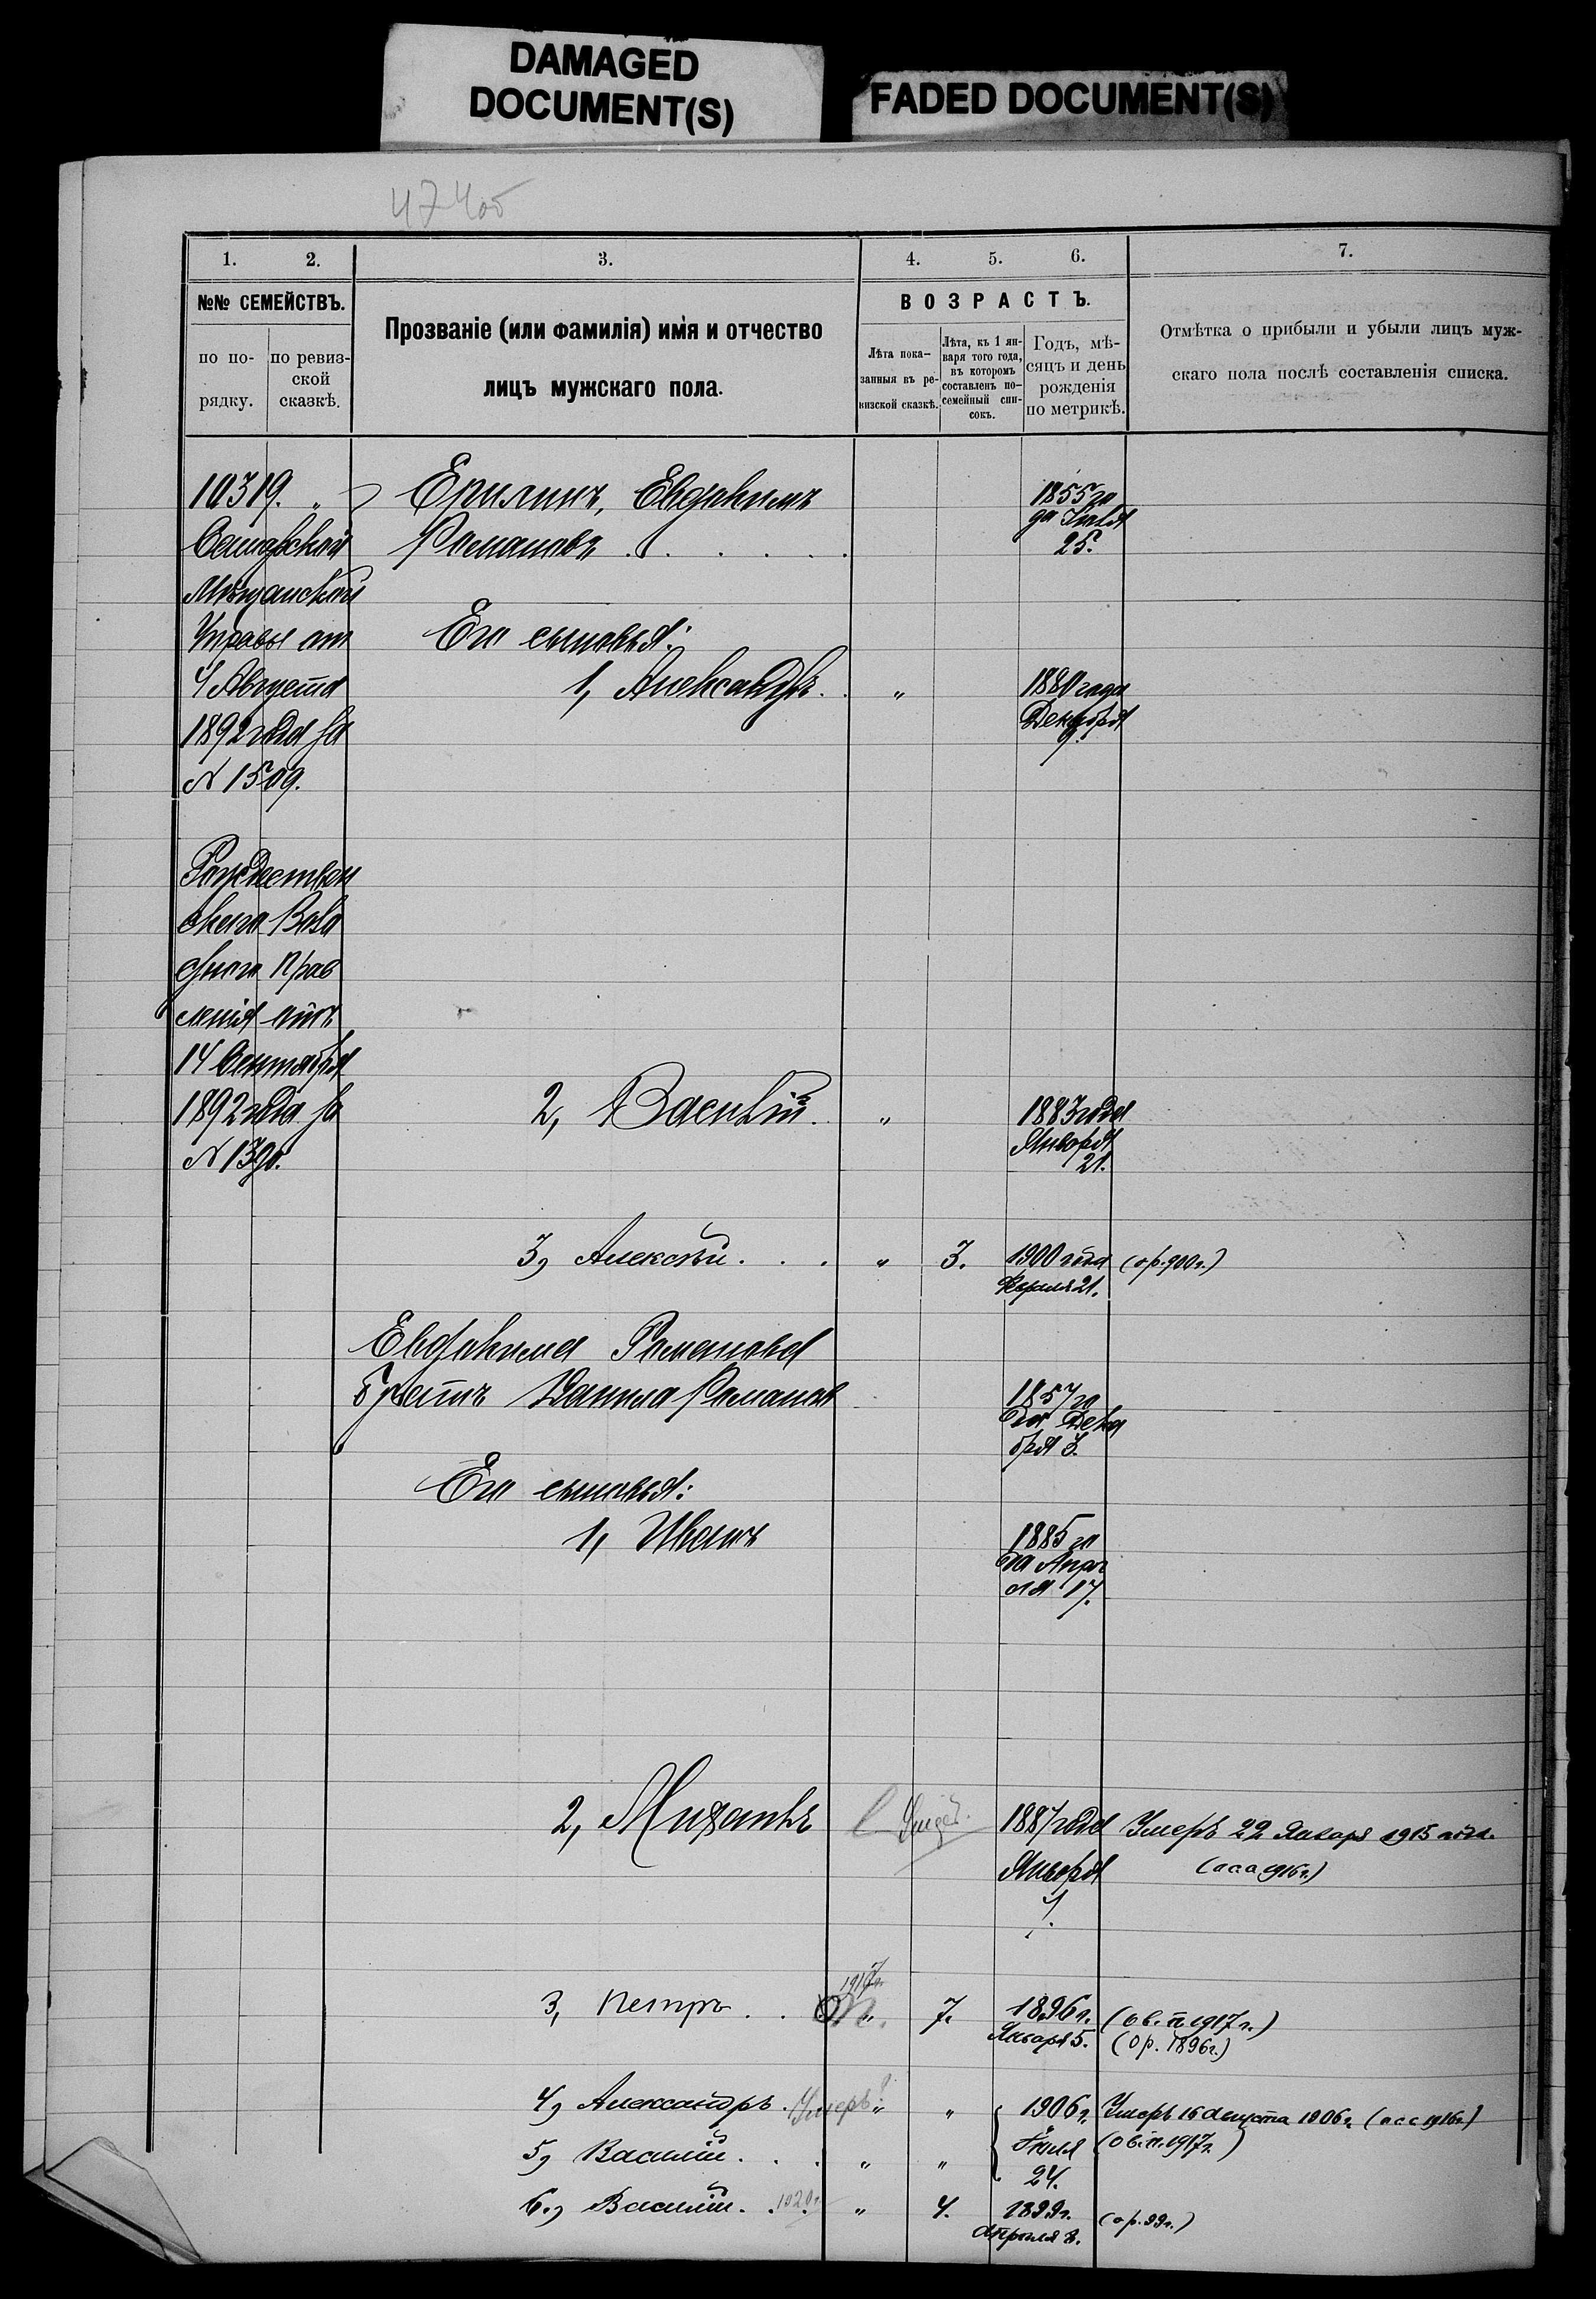 DAMAGED
DOCUMENT(S)
FADED DOCUMENT(S)
474об
1.
2.
3.
4.
5.
6.
7.
№№ СЕМЕЙСТВЪ.
по по-
рядку.
по ревиз-
ской
сказкѣ.
Прозваніе (или фамилія) имя и отчество
лицъ мужскаго пола.
ВОЗРАСТЪ.
Лѣта пока-
занныя въ ре-
визской сказкѣ.
Лѣта, къ 1 ян-
варя того года,
въ которомъ
составленъ по-
семейный спи-
сокъ.
Годъ, мѣ-
сяцъ и день
рожденія
по метрикѣ.
Отмѣтка о прибыли и убыли лицъ муж-
скаго пола послѣ составленія списка.
10319. "
Самарской
Мѣщанской
Управы от
4 Августа
1892 года за
N 1509.
Рождествен
скаго Воло
стного Прав
ленія отъ
14 Сентября
1892 года за
N 1390.
Ерилинъ, Евдокимъ
Романовъ . . . . .
1855 го
да Іюля
25.
Его сыновья:
1, Александръ. . "
1880 года
Декабря
9.
2, Василій. "
1883 года
Января
21.
3, Алексѣй . . . " 3.
1900 года
Февраля 21.
(ор. 900 г.)
Евдокима Романова
братъ Данила Романов
1857 го
да Дека
бря 3.
Его сыновья:
1, Иванъ
1885 го
да Апрѣ
ля 17.
2, Михаилъ
1887 года
Января
Умеръ 22 Января 1915 года.
(1916 г.)
3, Петръ . . " 7.
1917 г.
1896 г.
Января 5.
(о в. п. 1917 г.)
(ор. 1896 г.)
4, Александръ . Умеръ! " "
1906 г.
24.
Умеръ 16 Августа 1906 г. (1916 г.)
5, Василій . . . " "
(о в. п. 1917 г.)
6., Василій . . 1920 г. " 4.
1899 г.
Апрѣля 8.
(ор. 99 г.)